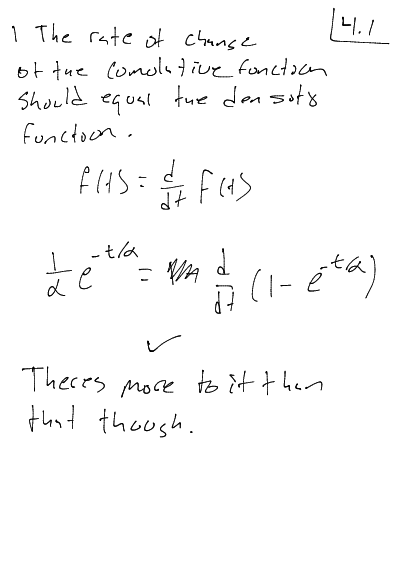 4.1
1 The rate of change
of the Comulative function
Should equal the density
function.
f(t) = d/dt F(t)
1/α e^{-t/α} = d/dt (1 - e^{-t/α})
✓
Theres more to it than
that though.